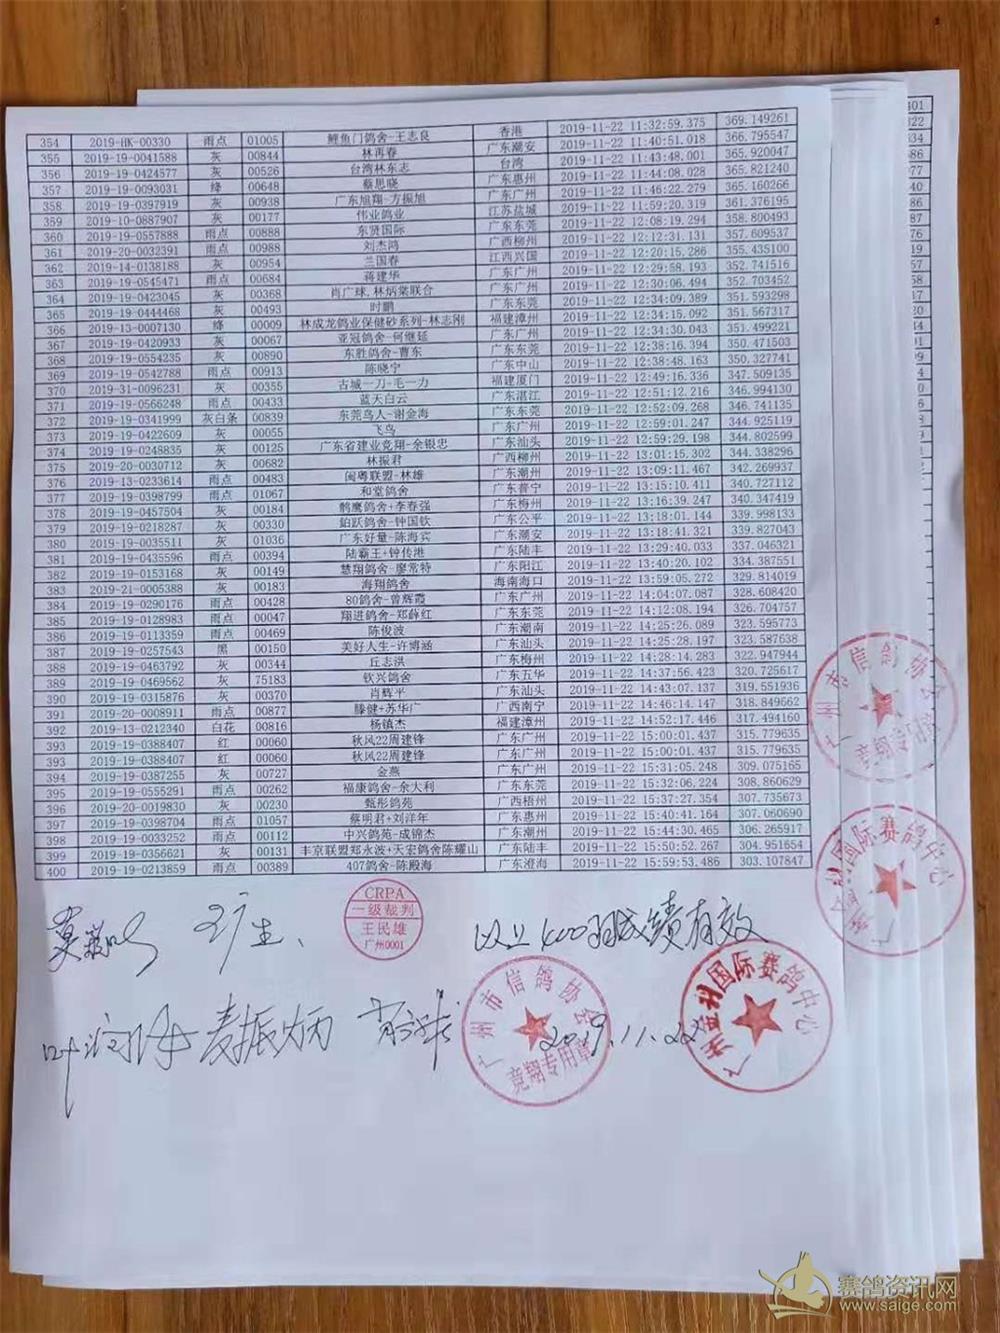 354 2019-HK-00330 雨点 01005 鲤鱼门鸽舍-王志良 香港 2019-11-22 11:32:59.375 369.149261
355 2019-19-0041588 灰 00844 林再春 广东潮安 2019-11-22 11:40:51.018 366.795547
356 2019-19-0424577 灰 00526 台湾林东志 台湾 2019-11-22 11:43:48.001 365.920047
357 2019-19-0093031 绛 00648 蔡思晓 广东惠州 2019-11-22 11:44:08.028 365.821240
358 2019-19-0397919 灰 00938 广东旭翔-方振旭 广东广州 2019-11-22 11:46:22.279 365.160266
359 2019-10-0887907 灰 00177 伟业鸽业 江苏盐城 2019-11-22 11:59:20.319 361.376195
360 2019-19-0557888 雨点 00888 东贤国际 广东东莞 2019-11-22 12:08:19.294 358.800493
361 2019-20-0032391 雨点 00988 刘杰鸿 广西柳州 2019-11-22 12:12:31.131 357.609537
362 2019-14-0138188 灰 00954 兰国春 江西兴国 2019-11-22 12:20:15.286 355.435100
363 2019-19-0545471 雨点 00684 蒋建华 广东广州 2019-11-22 12:29:58.193 352.741516
364 2019-19-0423045 灰 00368 肖广球.林炳棠联合 广东广州 2019-11-22 12:30:06.494 352.703452
365 2019-19-0444468 灰 00493 时鹏 广东东莞 2019-11-22 12:34:09.389 351.593298
366 2019-13-0007130 绛 00009 林成龙鸽业保健砂系列-林志刚 福建漳州 2019-11-22 12:34:15.092 351.567317
367 2019-19-0420933 灰 00067 亚冠鸽舍-何继延 广东广州 2019-11-22 12:34:30.043 351.499221
368 2019-19-0554235 灰 00890 东胜鸽舍-曹东 广东东莞 2019-11-22 12:38:16.394 350.471503
369 2019-19-0542788 雨点 00913 陈晓宁 广东中山 2019-11-22 12:38:48.163 350.327741
370 2019-31-0096231 灰 00355 古城一刀-毛一力 福建厦门 2019-11-22 12:49:16.336 347.509135
371 2019-19-0566248 雨点 00433 蓝天白云 广东湛江 2019-11-22 12:51:12.216 346.994130
372 2019-19-0341999 灰白条 00839 东莞鸟人-谢金海 广东东莞 2019-11-22 12:52:09.268 346.741135
373 2019-19-0422609 灰 00055 飞鸟 广东广州 2019-11-22 12:59:01.247 344.925119
374 2019-19-0248835 灰 00125 广东省建业竞翔-余银忠 广东汕头 2019-11-22 12:59:29.198 344.802599
375 2019-20-0030712 灰 00682 林振君 广西柳州 2019-11-22 13:01:15.302 344.338296
376 2019-13-0233614 雨点 00483 闽粤联盟-林雄 广东潮州 2019-11-22 13:09:11.467 342.269937
377 2019-19-0398799 雨点 01067 和堂鸽舍 广东普宁 2019-11-22 13:15:10.411 340.727112
378 2019-19-0457504 灰 00184 鹊鹰鸽舍+李春强 广东梅州 2019-11-22 13:16:39.247 340.347419
379 2019-19-0218287 灰 00330 铂跃鸽舍-钟国钦 广东公平 2019-11-22 13:18:01.144 339.998133
380 2019-19-0035511 灰 01036 广东好量-陈海宾 广东潮安 2019-11-22 13:18:41.321 339.827043
381 2019-19-0435596 雨点 00394 陆霸王+钟传港 广东陆丰 2019-11-22 13:29:40.033 337.046321
382 2019-19-0153168 灰 00149 慧翔鸽舍-廖常特 广东阳江 2019-11-22 13:40:20.102 334.387551
383 2019-21-0005388 灰 00183 海翔鸽舍 海南海口 2019-11-22 13:59:05.272 329.814019
384 2019-19-0290176 雨点 00428 80鸽舍-曾辉霞 广东广州 2019-11-22 14:04:07.087 328.608420
385 2019-19-0128983 雨点 00047 翔进鸽舍-郑薛红 广东东莞 2019-11-22 14:12:08.194 326.704757
386 2019-19-0113359 雨点 00469 陈俊波 广东潮南 2019-11-22 14:25:26.089 323.595773
387 2019-19-0257543 黑 00150 美好人生-许博涵 广东汕头 2019-11-22 14:25:28.197 323.587638
388 2019-19-0463792 灰 00344 丘志洪 广东梅州 2019-11-22 14:28:14.283 322.947944
389 2019-19-0469562 灰 75183 钦兴鸽舍 广东五华 2019-11-22 14:37:56.423 320.725617
390 2019-19-0315876 灰 00370 肖辉平 广东汕头 2019-11-22 14:43:07.137 319.551936
391 2019-20-0008911 雨点 00877 滕健+苏华广 广西南宁 2019-11-22 14:46:14.147 318.849662
392 2019-13-0212340 白花 00816 杨镇杰 福建漳州 2019-11-22 14:52:17.446 317.494160
393 2019-19-0388407 红 00060 秋风22周建锋 广东广州 2019-11-22 15:00:01.437 315.779635
393 2019-19-0388407 红 00060 秋风22周建锋 广东广州 2019-11-22 15:00:01.437 315.779635
394 2019-19-0387255 灰 00727 金燕 广东广州 2019-11-22 15:31:05.248 309.075165
395 2019-19-0555291 雨点 00262 福康鸽舍-余大利 广东东莞 2019-11-22 15:32:06.224 308.860629
396 2019-20-0019830 灰 00230 甄彤鸽苑 广西梧州 2019-11-22 15:37:27.354 307.735673
397 2019-19-0398704 雨点 01057 蔡明君+刘洋年 广东惠州 2019-11-22 15:40:41.164 307.060690
398 2019-19-0033252 雨点 00112 中兴鸽苑-成锦杰 广东潮州 2019-11-22 15:44:30.465 306.265917
399 2019-19-0356621 灰 00131 丰京联盟郑永波+天宏鸽舍陈耀山 广东陆丰 2019-11-22 15:50:52.267 304.951654
400 2019-19-0213859 雨点 00389 407鸽舍-陈殿海 广东澄海 2019-11-22 15:59:53.486 303.107847
CRPA
一级裁判
王民雄
广州0001
以上400羽成绩有效
麦振炳
广州市信鸽协会
竞翔专用章
2019.11.22
国际赛鸽中心
广州市信鸽协会
竞翔专用章
国际赛鸽中心
赛鸽资讯网
www.saige.com